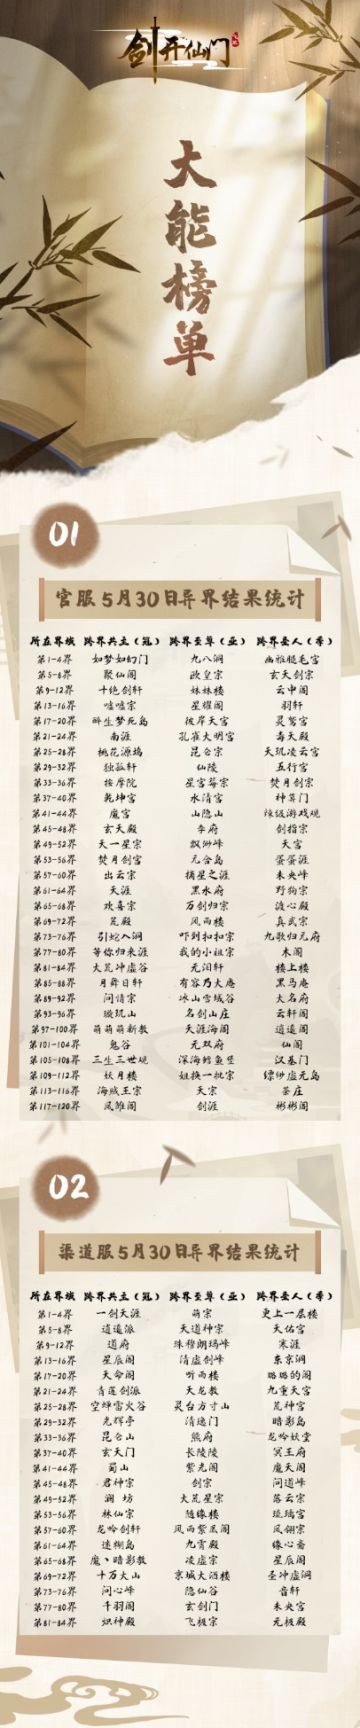 剑开仙门
大能榜单
01
官服5月30日异界结果统计
所在界域 跨界共主(冠) 跨界至尊(亚) 跨界圣人(季)
第1-4界 如梦如幻门 九八洞 幽雅腿毛宫
第5-8界 聚仙阁 欧皇宗 玄天剑宗
第9-12界 十绝剑轩 妹妹楼 云中阁
第13-16界 嘘嘘宗 星耀阁 羽轩
第17-20界 醉生梦死岛 彼岸天宫 灵鸳宫
第21-24界 南涯 孔雀大明宫 毒天殿
第25-28界 桃花源坞 昆仑宗 天玑凌云宫
第29-32界 独孤轩 仙陵 五行宫
第33-36界 按摩院 星宫莓宗 焚月剑宗
第37-40界 乾坤宫 水清宫 神算门
第41-44界 魔宫 山隐山 辣级游戏观
第45-48界 玄天殿 李府 剑指宗
第49-52界 天一星宗 飘渺峰 天宫
第53-56界 焚月剑宫 无合岛 蛋蛋涯
第57-60界 出云宗 摘星之涯 未央峰
第61-64界 天涯 黑水府 野狗宗
第65-68界 欢喜宗 万剑归宗 渡心殿
第69-72界 荒殿 风雨楼 真武宗
第73-76界 引蛇入洞 吓到扣扣宗 九歌归元府
第77-80界 等你归来涯 我的小姐宗 木阁
第81-84界 大荒冲虚谷 无泪轩 楼上楼
第85-88界 月舞日轩 有容乃大庵 黑马庵
第89-92界 问情宗 冰山雪域谷 大名府
第93-96界 璇玑山 名剑山庄 云轩阁
第97-100界 萌萌萌新教 天涯海阁 逍遥阁
第101-104界 鬼谷 无双府 仙阁
第105-108界 三生三世观 深海鳕鱼堡 汉基门
第109-112界 妖月楼 姐换一批宗 缥缈虚无岛
第113-116界 海贼王宗 天宗 茶庄
第117-120界 凤雏阁 剑涯 彬彬阁
02
渠道服5月30日异界结果统计
所在界域 跨界共主(冠) 跨界至尊(亚) 跨界圣人(季)
第1-4界 一剑天涯 萌宗 更上一层楼
第5-8界 逍遥派 天道神宗 天佑宫
第9-12界 道府 珠穆朗玛峰 寒涯
第13-16界 星辰阁 清虚剑峰 东京洞
第17-20界 天命阁 听雨楼 璐璐的阁
第21-24界 青莲剑派 天龙教 九重天宫
第25-28界 空蝉雷火谷 灵台方寸山 荒神宫
第29-32界 光辉亭 清逸门 暗影岛
第33-36界 昆仑山 熊府 龙吟妖堂
第37-40界 玄天门 长陵陵 冥王府
第41-44界 蜀山 紫光阁 魔天阁
第45-48界 君神宗 剑宗 问道峰
第49-52界 澜 坊 大荒星宗 落云宗
第53-56界 林仙宗 随缘楼 琉璃宫
第57-60界 龙吟剑轩 风雨紫凰阁 凤翎宗
第61-64界 迷糊岛 九霄殿 缘心斋
第65-68界 魔丶暗影教 凌虚宗 星辰阁
第69-72界 十万大山 京城大酒楼 圣冲虚洞
第73-76界 问心峰 隐仙谷 音轩
第77-80界 千羽阁 玄剑门 未央宫
第81-84界 炽神殿 飞极宗 无极殿